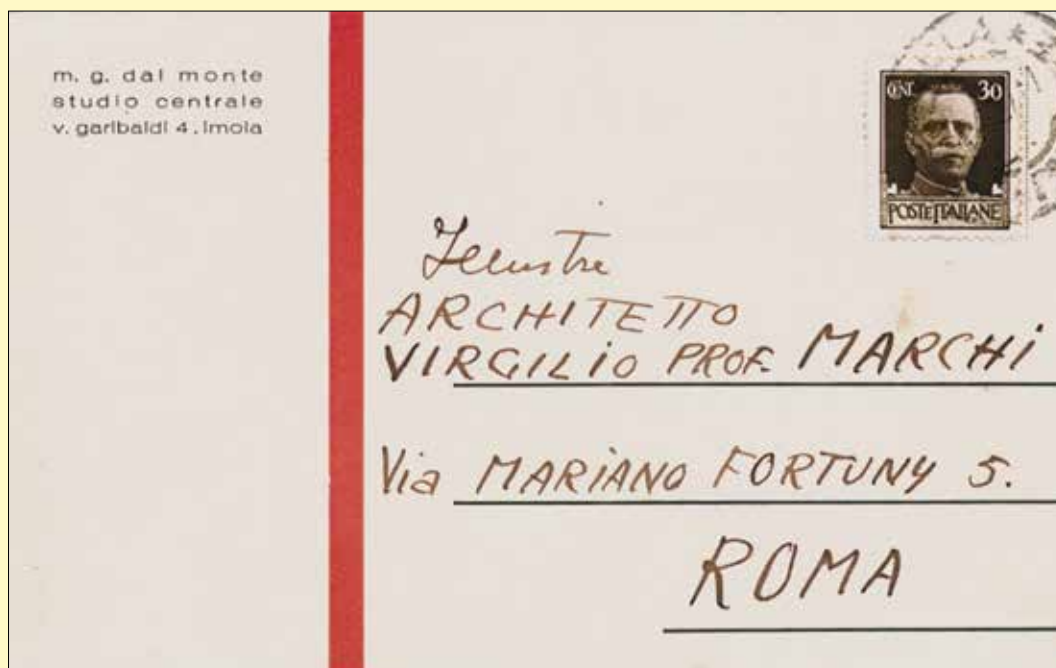 m. g. dal monte
studio centrale
v. garibaldi 4. imola
CENT. 30
POSTE ITALIANE
Illustre
ARCHITETTO
VIRGILIO PROF. MARCHI
Via MARIANO FORTUNY 5.
ROMA